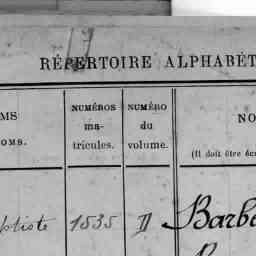 17
RÉPERTOIRE ALPHABÉT
MS
OMS.
NUMÉROS
ma-
tricules.
NUMÉRO
du
volume.
NO
(Il doit être éc
ptiste 1535 II Barbe